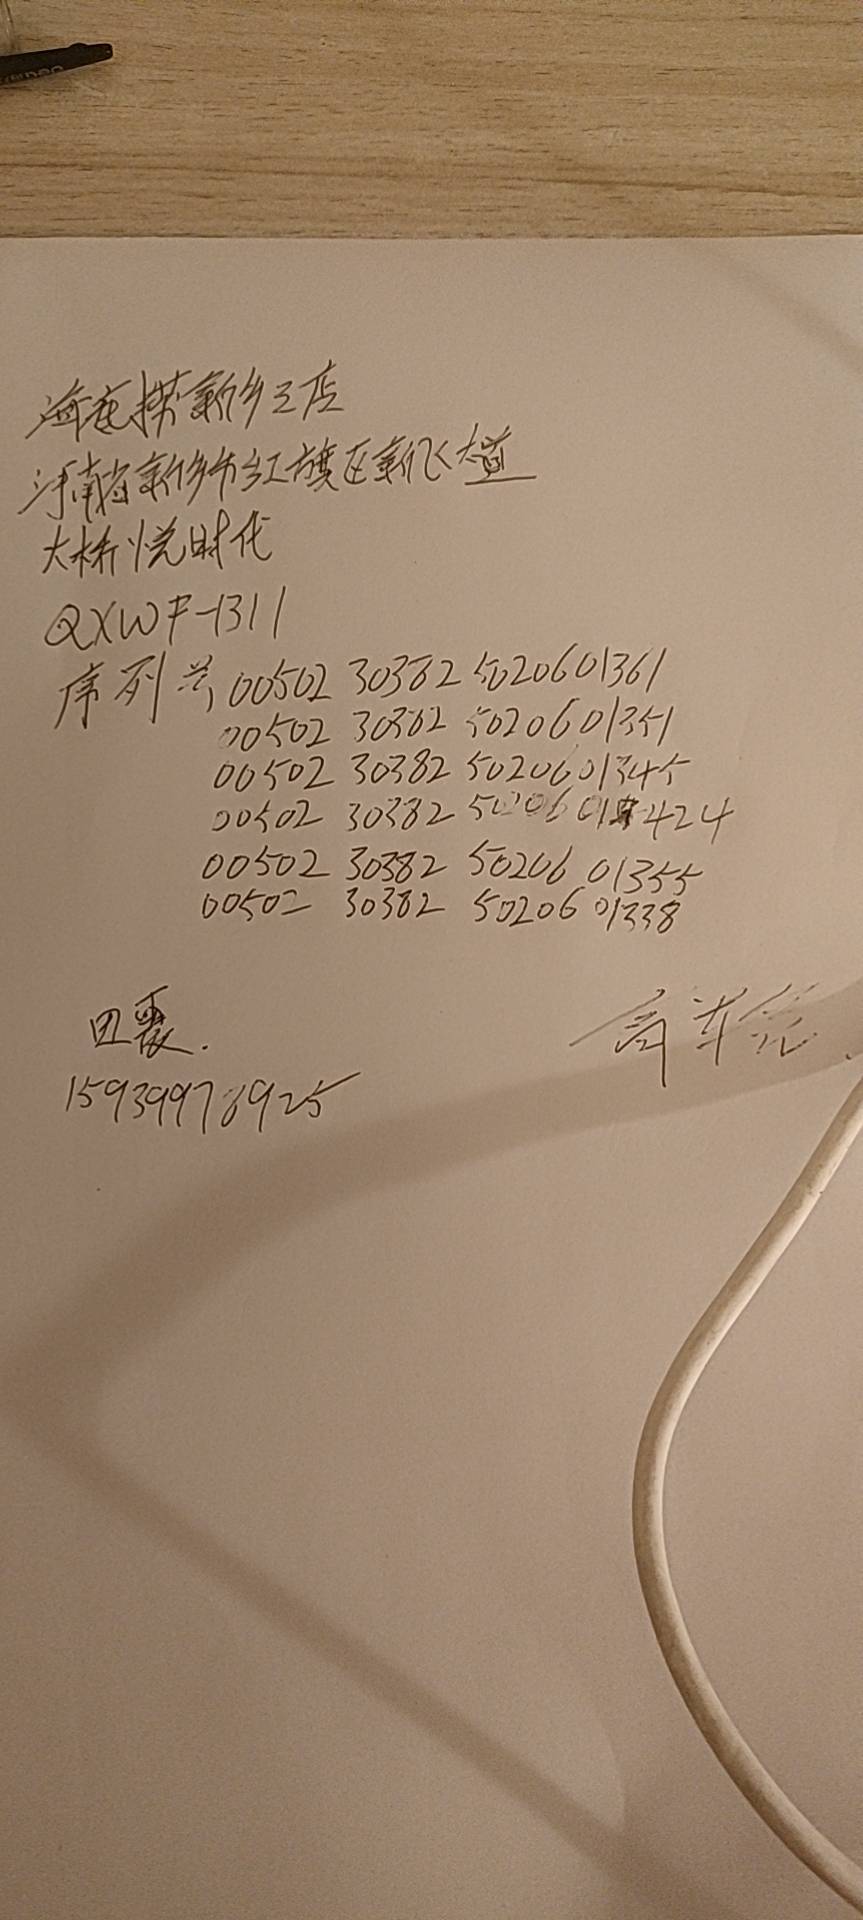 海底捞新乡三店
河南省新乡市红旗区新飞大道
大桥悦时代
QXWF-1311
序列号, 00502 30382 5020601361
00502 30382 5020601351
00502 30382 5020601345
00502 30382 5020601424
00502 30382 50206 01355
00502 30382 50206 01338
田震.
15939978925